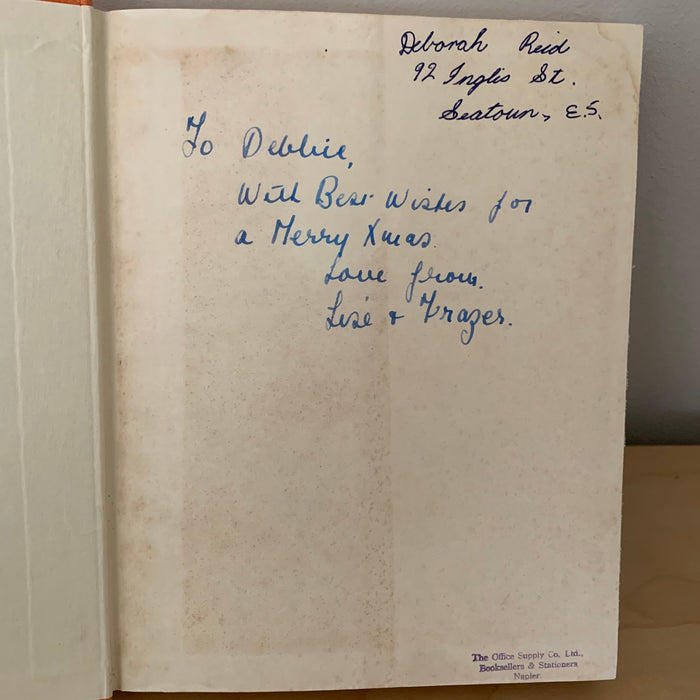 Deborah Reid
92 Inglis St.
Seatoun, E.5.
To Debbie,
With Best Wishes for
a Merry Xmas.
Love from.
Lisé & Frazer.
The Office Supply Co. Ltd.,
Booksellers & Stationers
Napier.